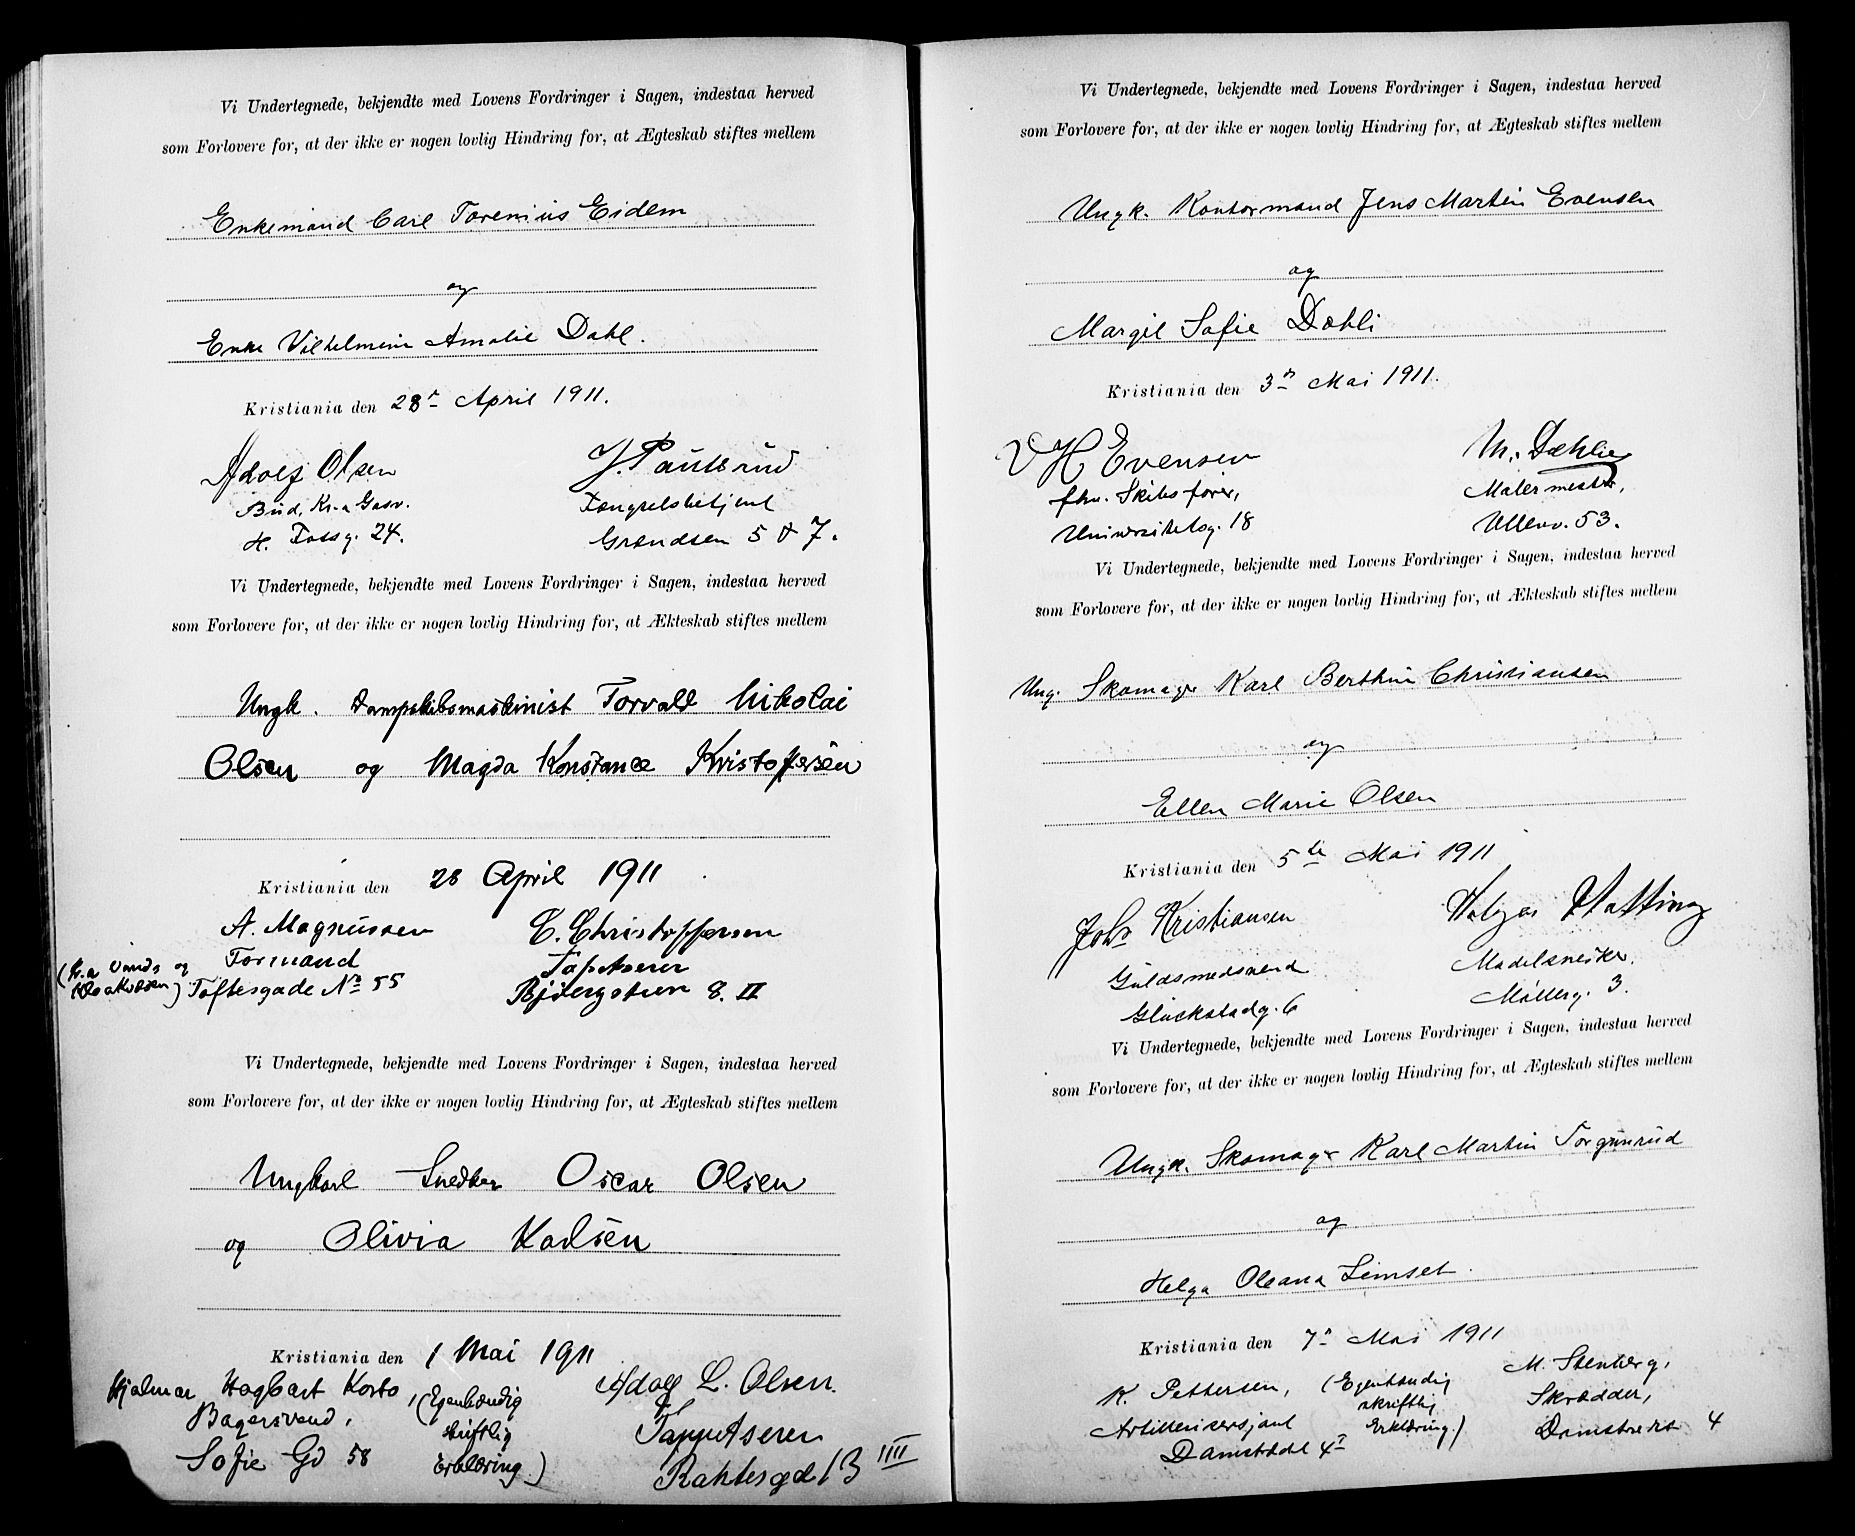 Vi Undertegnede, bekjendte med Lovens Fordringer i Sagen, indestaa herved
som Forlovere for, at der ikke er nogen lovlig Hindring for, at Ægteskab stiftes mellem
Enkemand Carl Torenius Eidem
og
Enke Vilhelmine Amalie Dahl.
Kristiania den 28n April 1911.
Adolf Olsen J. Paulsrud
Bud, Kr.a Gasv. Fængselsbetjent
H. Fossg. 24. Grændsen 5 & 7.
Vi Undertegnede, bekjendte med Lovens Fordringer i Sagen, indestaa herved
som Forlovere for, at der ikke er nogen lovlig Hindring for, at Ækteskab stiftes mellem
Ungk. Dampskibsmaskinist Torvald Nikolai
Olsen og Magda Konstance Kristoffersen
Kristiania den 28 April 1911
A. Magnussen C. Christoffersen
Formand Tapetserer
(Kr.a Vands og Kloakvæsen) Toftesgade No 55 Bjergstien 8. II
Vi Undertegnede, bekjendte med Lovens Fordringer i Sagen, indestaa herved
som Forlovere for, at der ikke er nogen lovlig Hindring for, at Ægteskab stiftes mellem
Ungkarl Snedker Oscar Olsen
og Olivia Karlsen
Kristiania den 1 Mai 1911
Hjalmar Hagbart Korto, (Egenhændig Adolf L. Olsen.
Bagersvend, skriftlig Tappetserer
Sofie Gd 58 Erklæring) 13 IIII
Vi Undertegnede, bekjendte med Lovens Fordringer i Sagen, indestaa herved
som Forlovere for, at der ikke er nogen lovlig Hindring for, at Ægteskab stiftes mellem
Ungk. Kontormand Jens Martin Evensen
og
Margit Sofie Dæhli
Kristiania den 3n Mai 1911.
H Evensen M. Dæhlie
fhv. Skibsfører, Malermester,
Universitetsg. 18 Ullev. 53.
Vi Undertegnede, bekjendte med Lovens Fordringer i Sagen, indestaa herved
som Forlovere for, at der ikke er nogen lovlig Hindring for, at Ækteskab stiftes mellem
Ung. Skomager Karl Berthin Christiansen
og
Ellen Marie Olsen
Kristiania den 5te Mai 1911
Johs Kristiansen Holger Hatting
Guldsmedsvend Modelsnekker.
Glückstadg. 6 Møllerg. 3.
Vi Undertegnede, bekjendte med Lovens Fordringer i Sagen, indestaa herved
som Forlovere for, at der ikke er nogen lovlig Hindring for, at Ægteskab stiftes mellem
Ungk. Skomager Karl Martin Torgunrud
og
Helga Oleana Limset.
Kristiania den 7n Mai 1911
K. Pettersen, (Egenhændig M. Stenberg,
Artillerisersjant skriftlig Skrædder,
Damstrædet 4 Erklæring.) Damstrædet 4